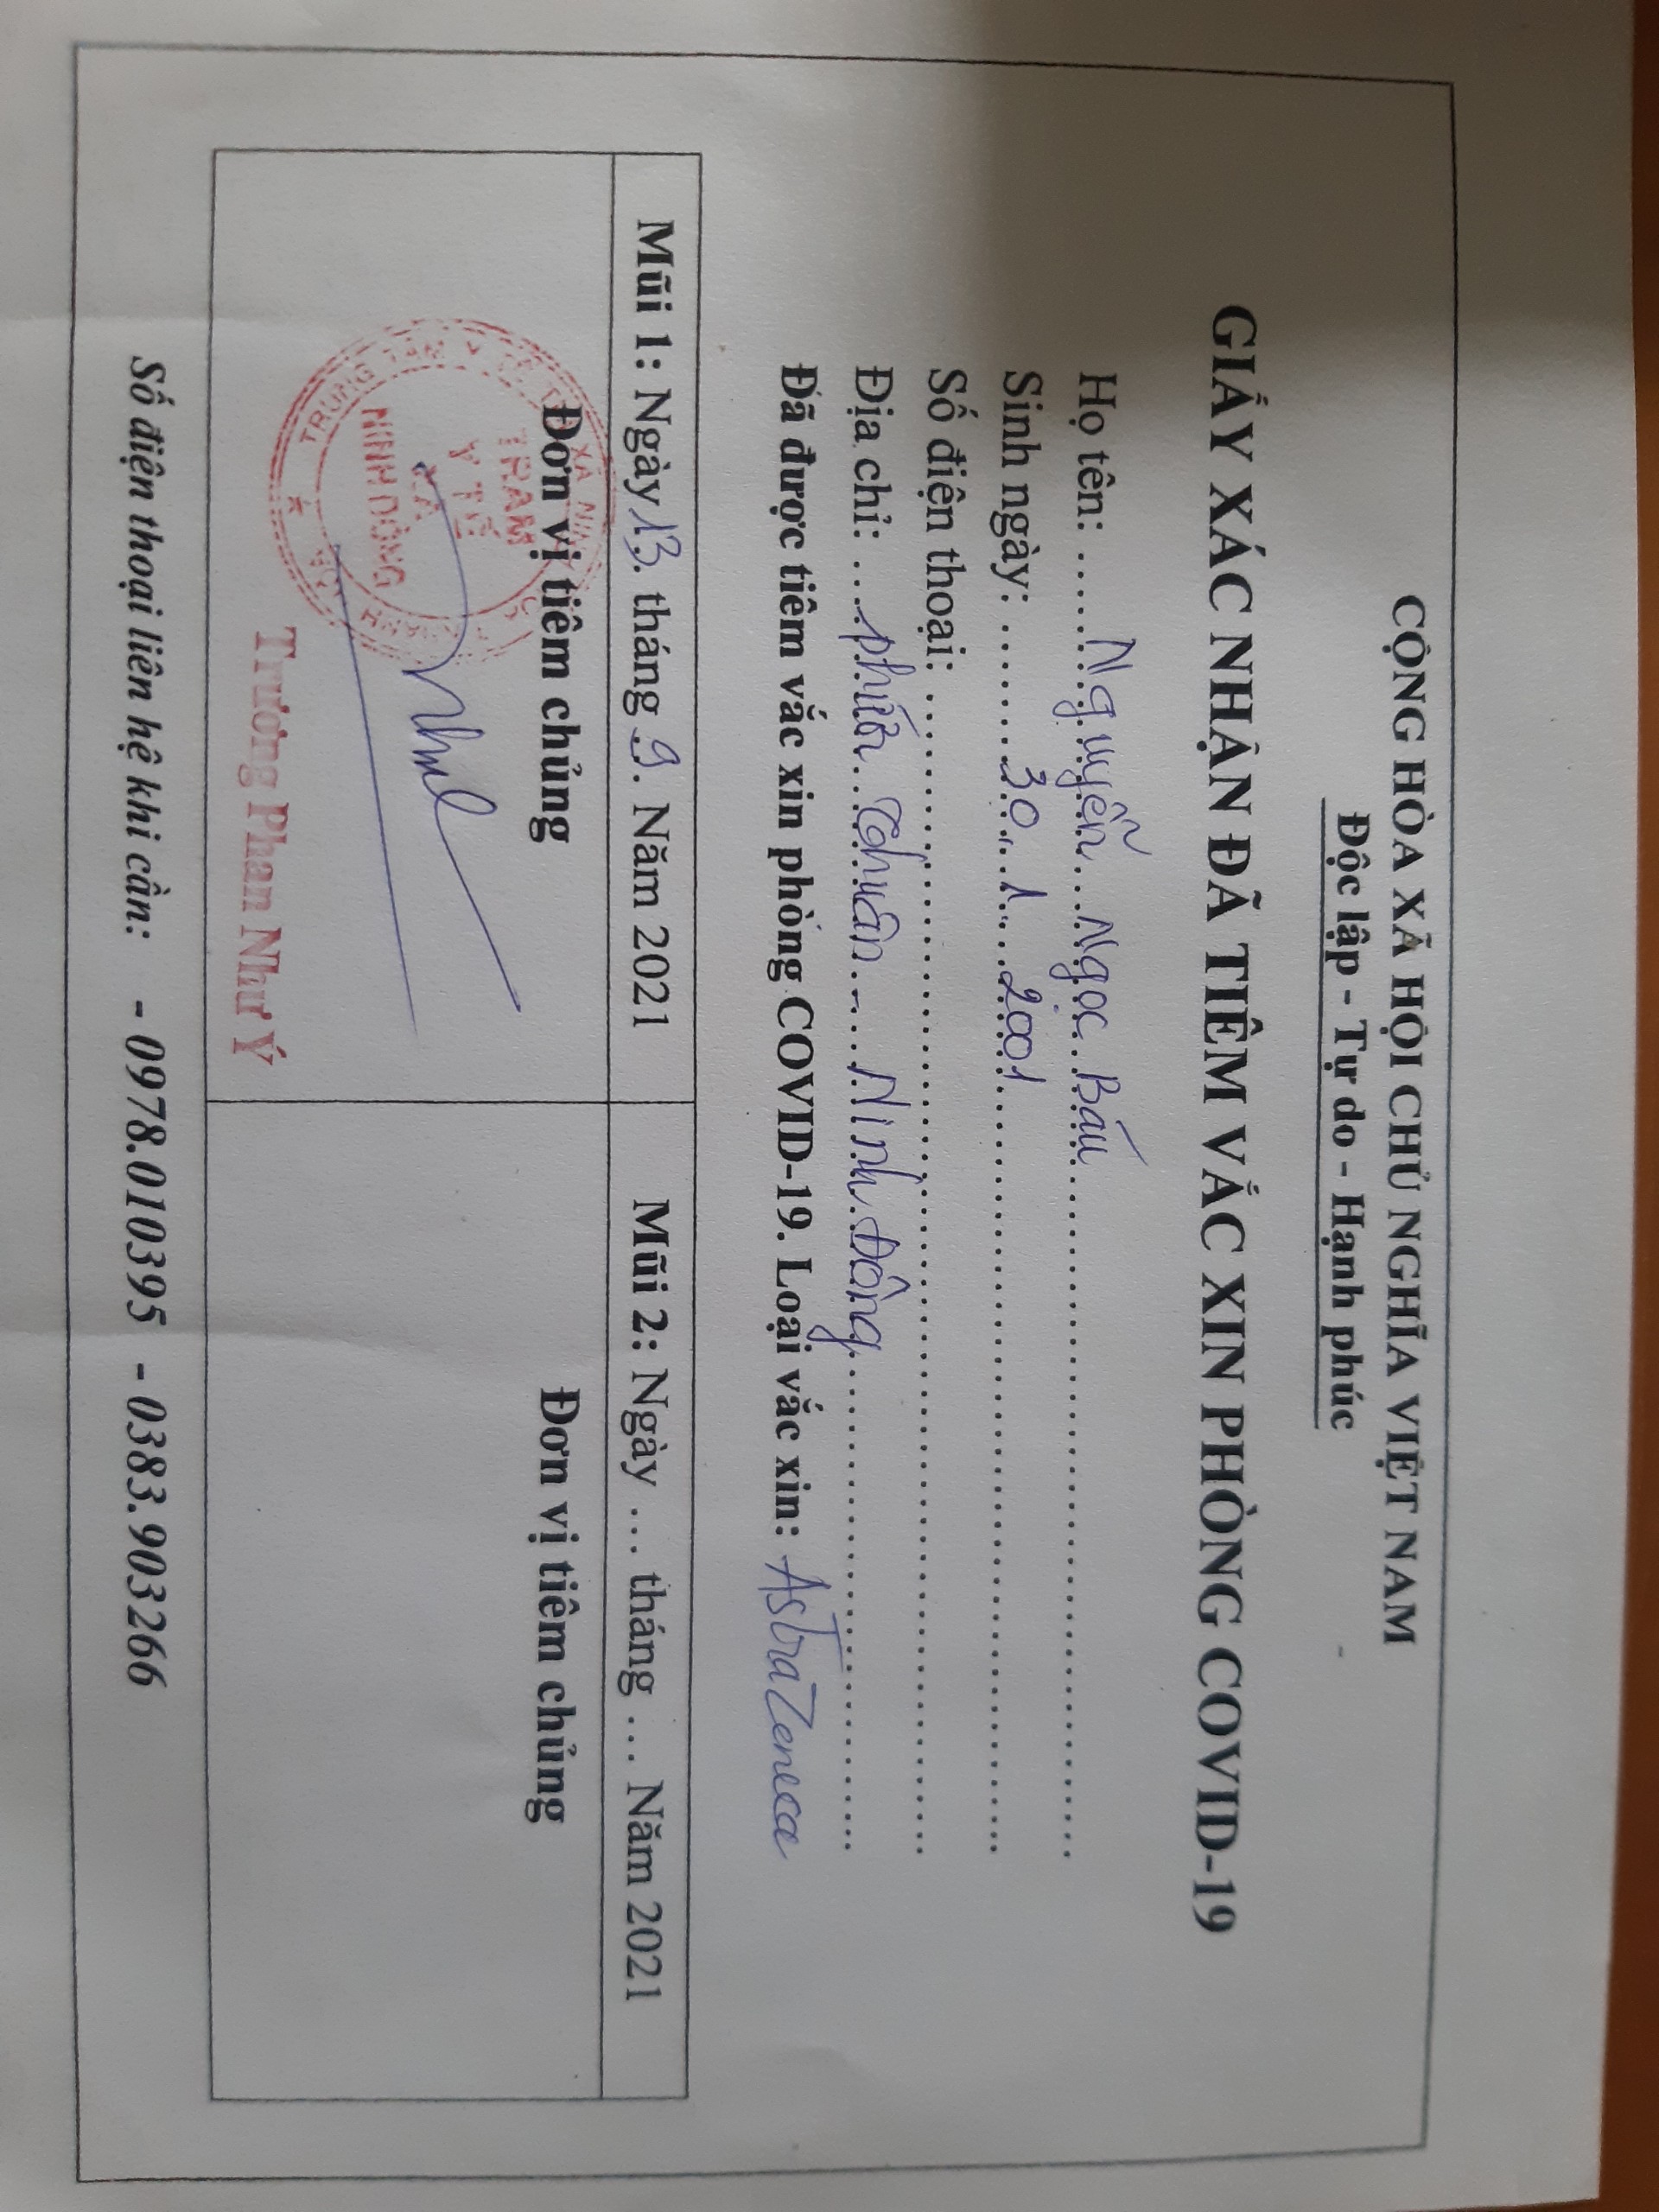 CỘNG HÒA XÃ HỘI CHỦ NGHĨA VIỆT NAM
Độc lập - Tự do - Hạnh phúc
GIẤY XÁC NHẬN ĐÃ TIÊM VẮC XIN PHÒNG COVID-19
Họ tên: Nguyễn Ngọc Báu
Sinh ngày: 30 . 1 . 2001
Số điện thoại:
Địa chỉ: Phước Thuận - Ninh Đông
Đã được tiêm vắc xin phòng COVID-19. Loại vắc xin: AstraZeneca
Mũi 1: Ngày 13. tháng 9. Năm 2021
Mũi 2: Ngày ... tháng ... Năm 2021
Đơn vị tiêm chủng
Đơn vị tiêm chủng
TRUNG TÂM Y TẾ THỊ XÃ NINH HÒA
TRẠM
Y TẾ
XÃ
NINH ĐÔNG
Trương Phan Như Ý
Số điện thoại liên hệ khi cần: - 0978.010395 - 0383.903266